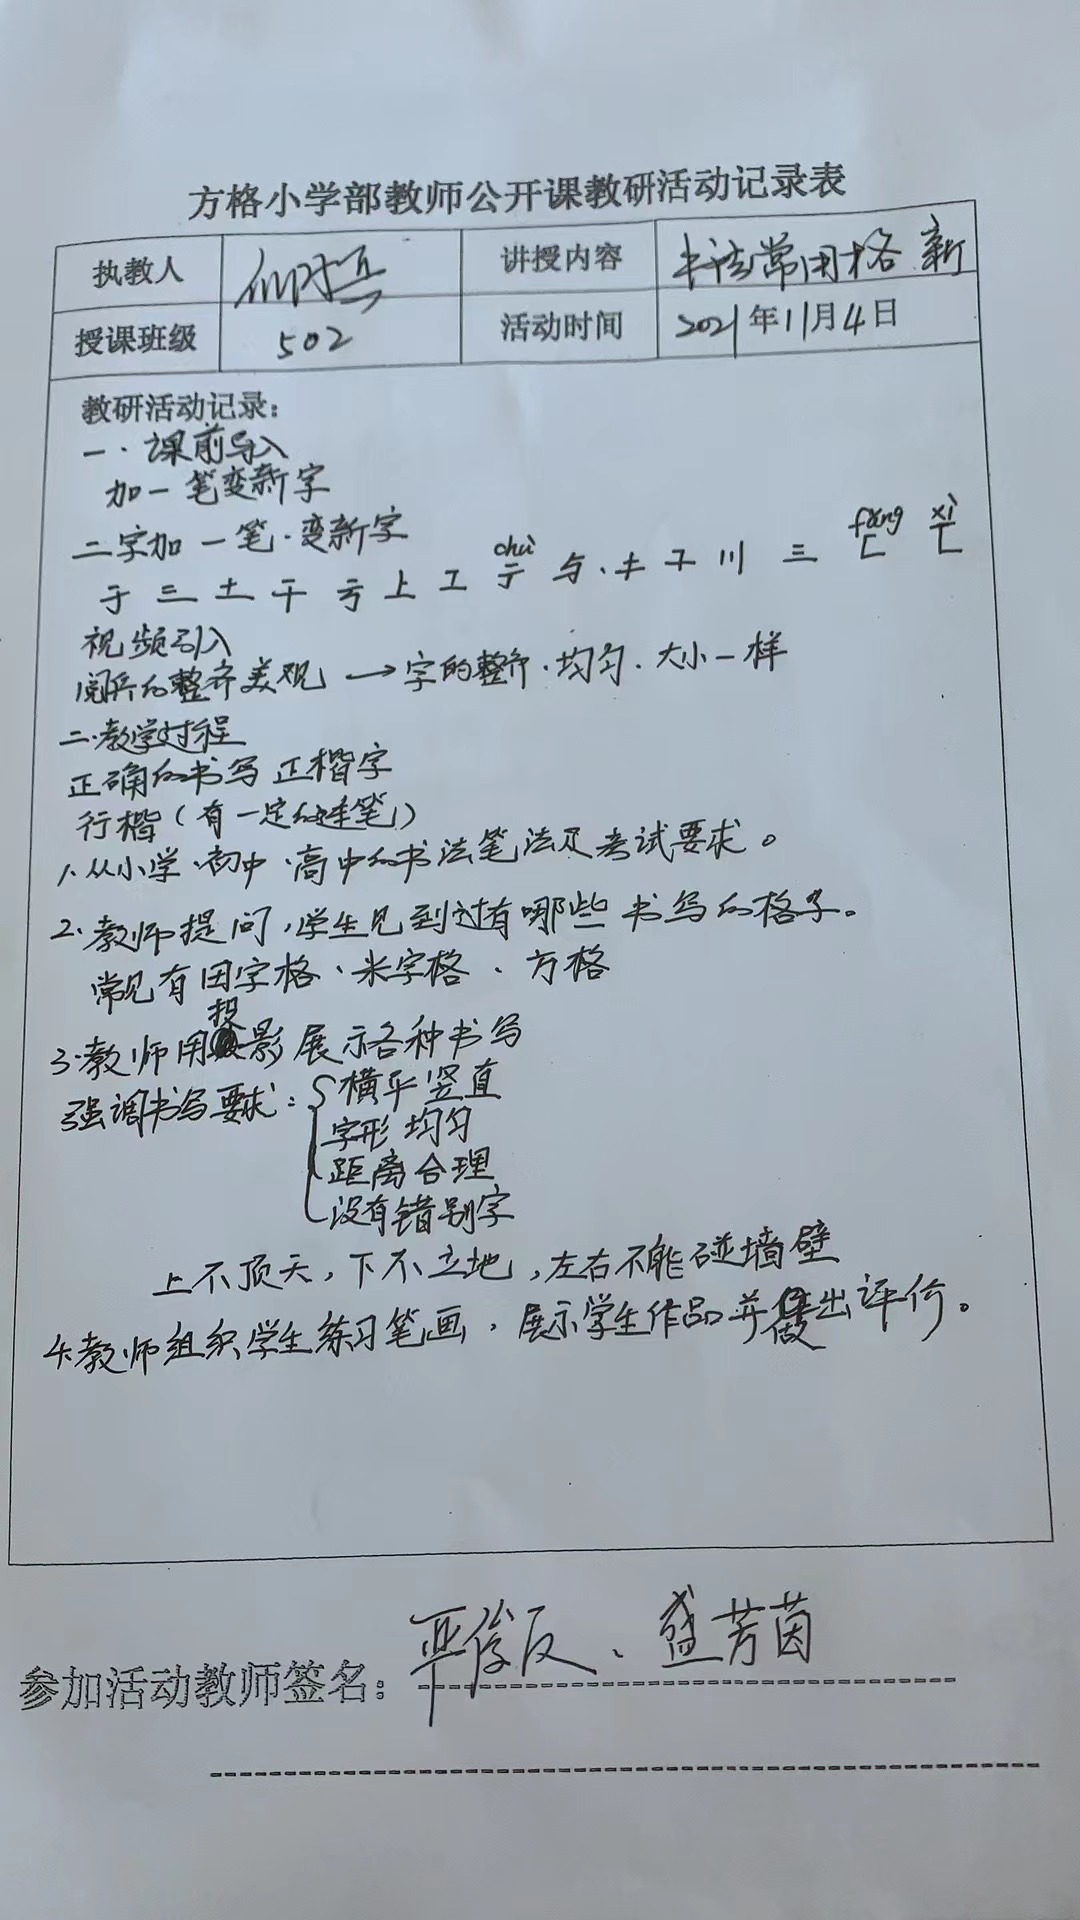 方格小学部教师公开课教研活动记录表
执教人 讲授内容 书法常用格 新
授课班级 502 活动时间 2021年11月4日
教研活动记录：
一.课前导入
加一笔变新字
二字加一笔.变新字
chù fāng xì
于 三 土 干 亏 上 工 亍 与. 丰 子 川 三 匚 匸
视频引入
阅兵的整齐美观→字的整齐.均匀.大小一样
二.教学过程
正确的书写 正楷字
行楷（有一定的连笔）
1.从小学.初中.高中的书法笔法及考试要求。
2.教师提问，学生见到过有哪些书写的格子。
常见有田字格、米字格、方格
3.教师用投影展示各种书写
强调书写要求：横平竖直
字形均匀
距离合理
没有错别字
上不顶天，下不立地，左右不能碰墙壁
4.教师组织学生练习笔画，展示学生作品并做出评价。
参加活动教师签名：严俊反、盛芳茵